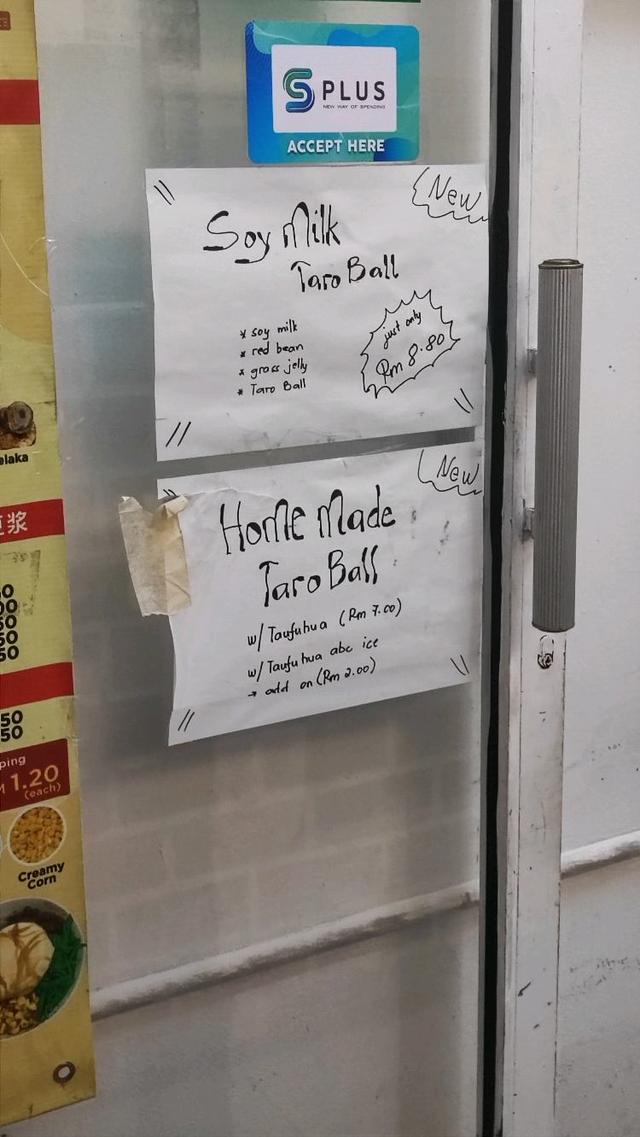 S PLUS
NEW WAY OF SPENDING
ACCEPT HERE
New
Soy Milk
Taro Ball
* soy milk
* red bean
* grass jelly
* Taro Ball
just only
Rm 8.80
New
Home Made
Taro Ball
w/ Taufuhua (Rm 7.00)
w/ Taufuhua abc ice
→ add on (Rm 2.00)
elaka
浆
50
50
ping
1.20
(each)
Creamy
Corn